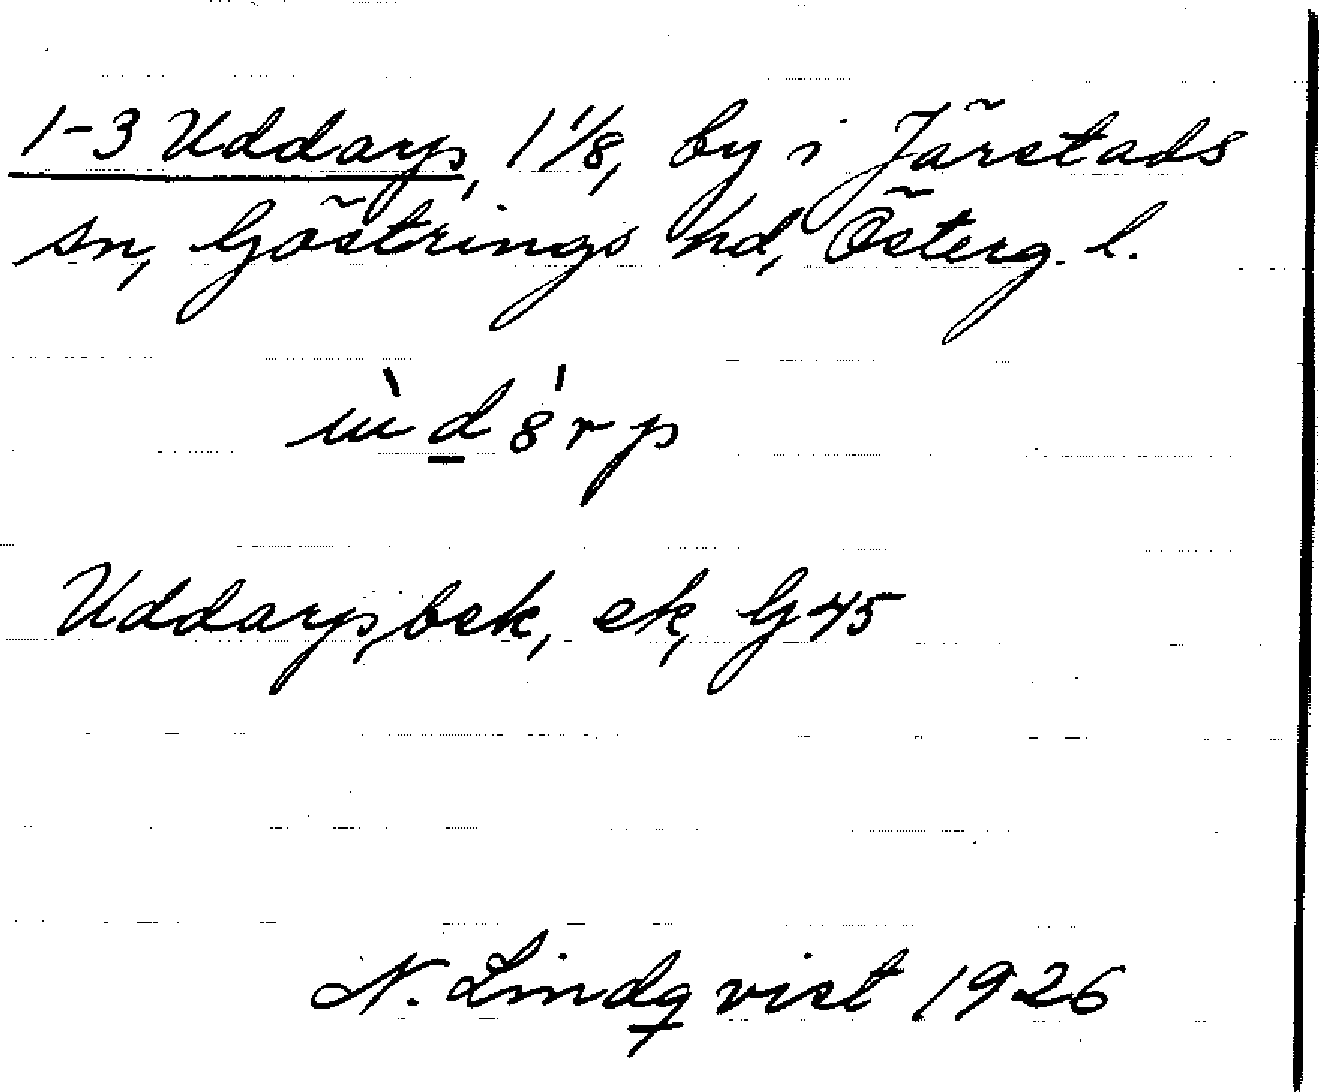 1-3 Uddarp, 1 1/8, by i Järstads
sn, Göstrings hd, Österg. l.
ùdȣ́rp
Uddarp, bek, ek, G 45
N. Lindqvist 1926